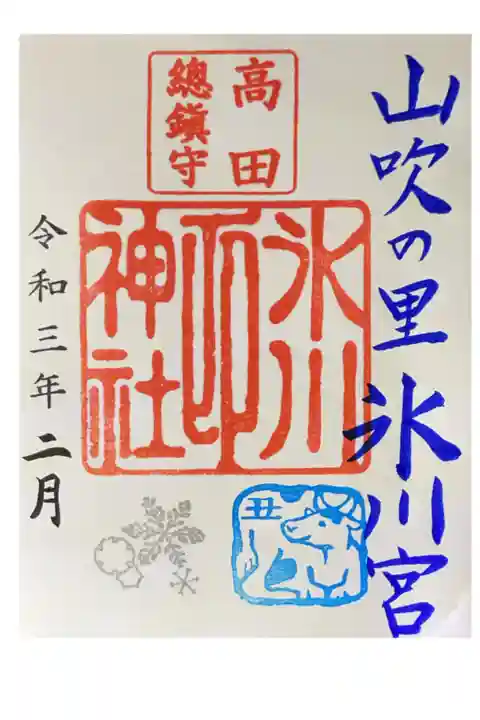 山吹の里 氷川宮
高田
總鎮守
氷川
神社
令和三年二月
丑